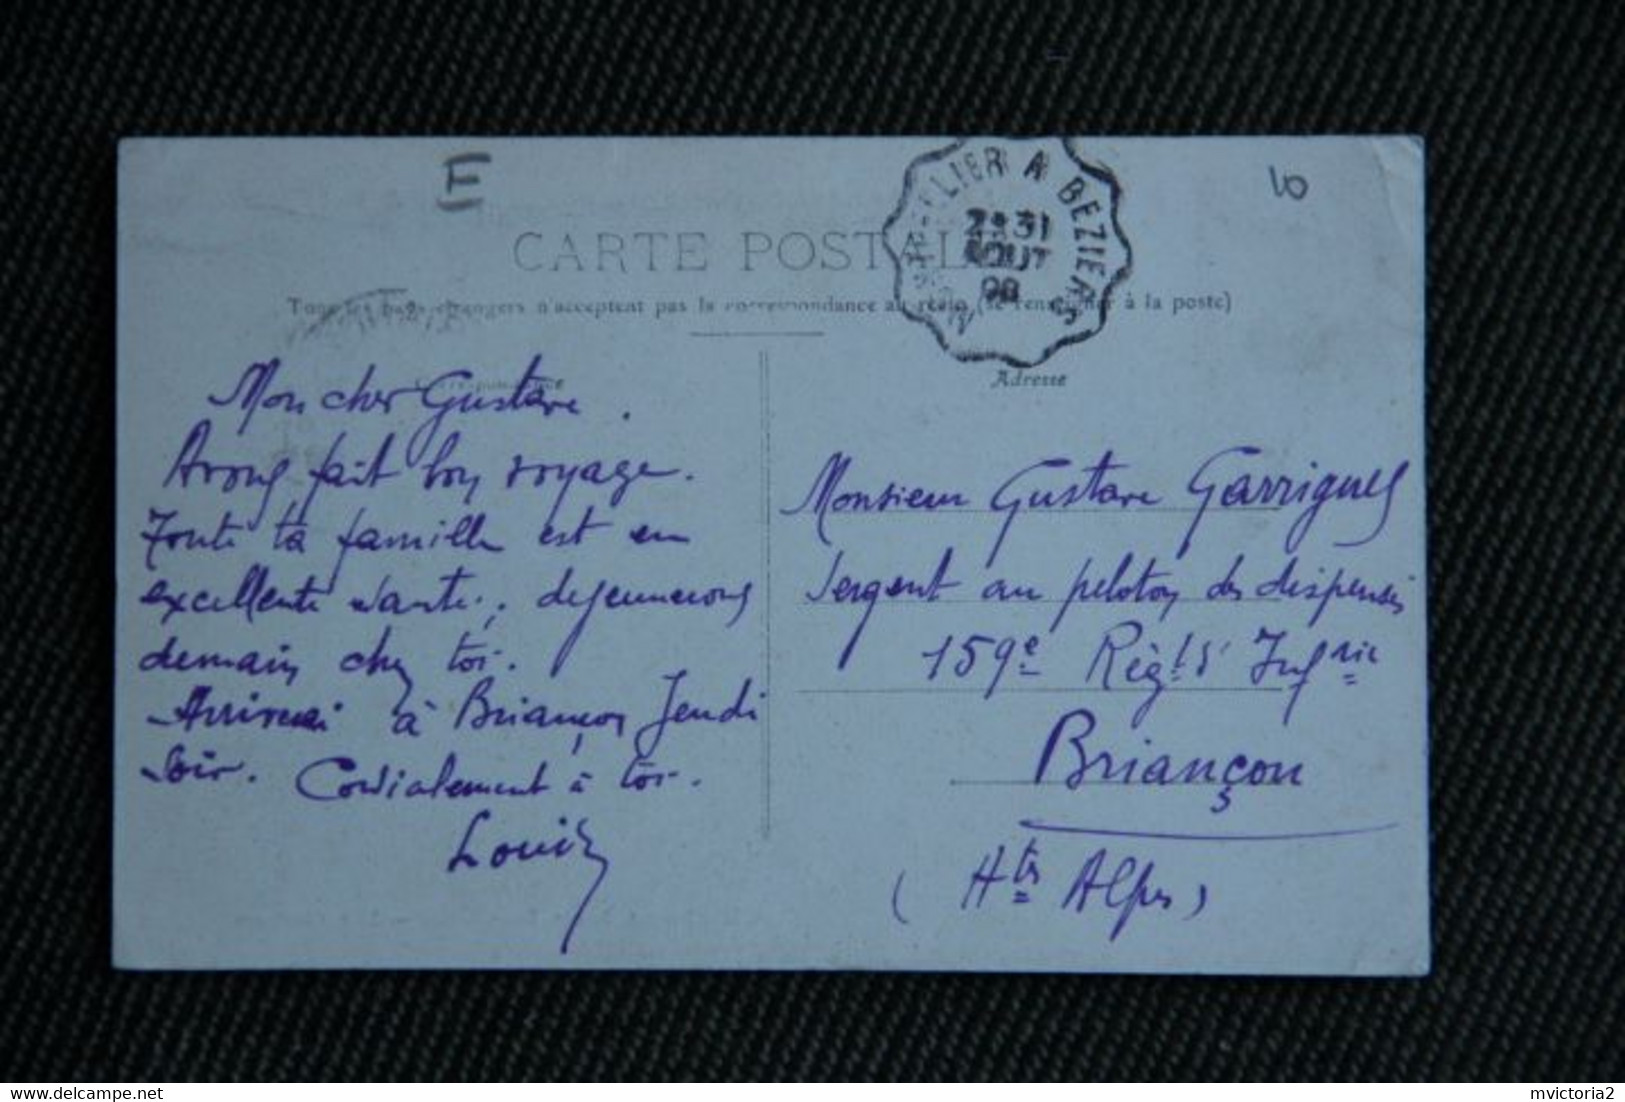 E
10
MONTPELLIER A BEZIERS
2E 31
AOUT
09
CARTE POSTALE
Tous les pays étrangers n'acceptent pas la correspondance au recto (Se renseigner à la poste)
Correspondance
Adresse
Mon cher Gustave.
Avons fait bon voyage.
Toute ta famille est en
excellente santé, dejeunerons
demain chez toi.
Arriverai à Briançon Jeudi
Soir. Cordialement à toi.
Louis
Monsieur Gustave Garrigues
Sergent au peloton des dispensés
159e Règt d'Infrie
Briançon
(Htes Alpes)
mvictoria2